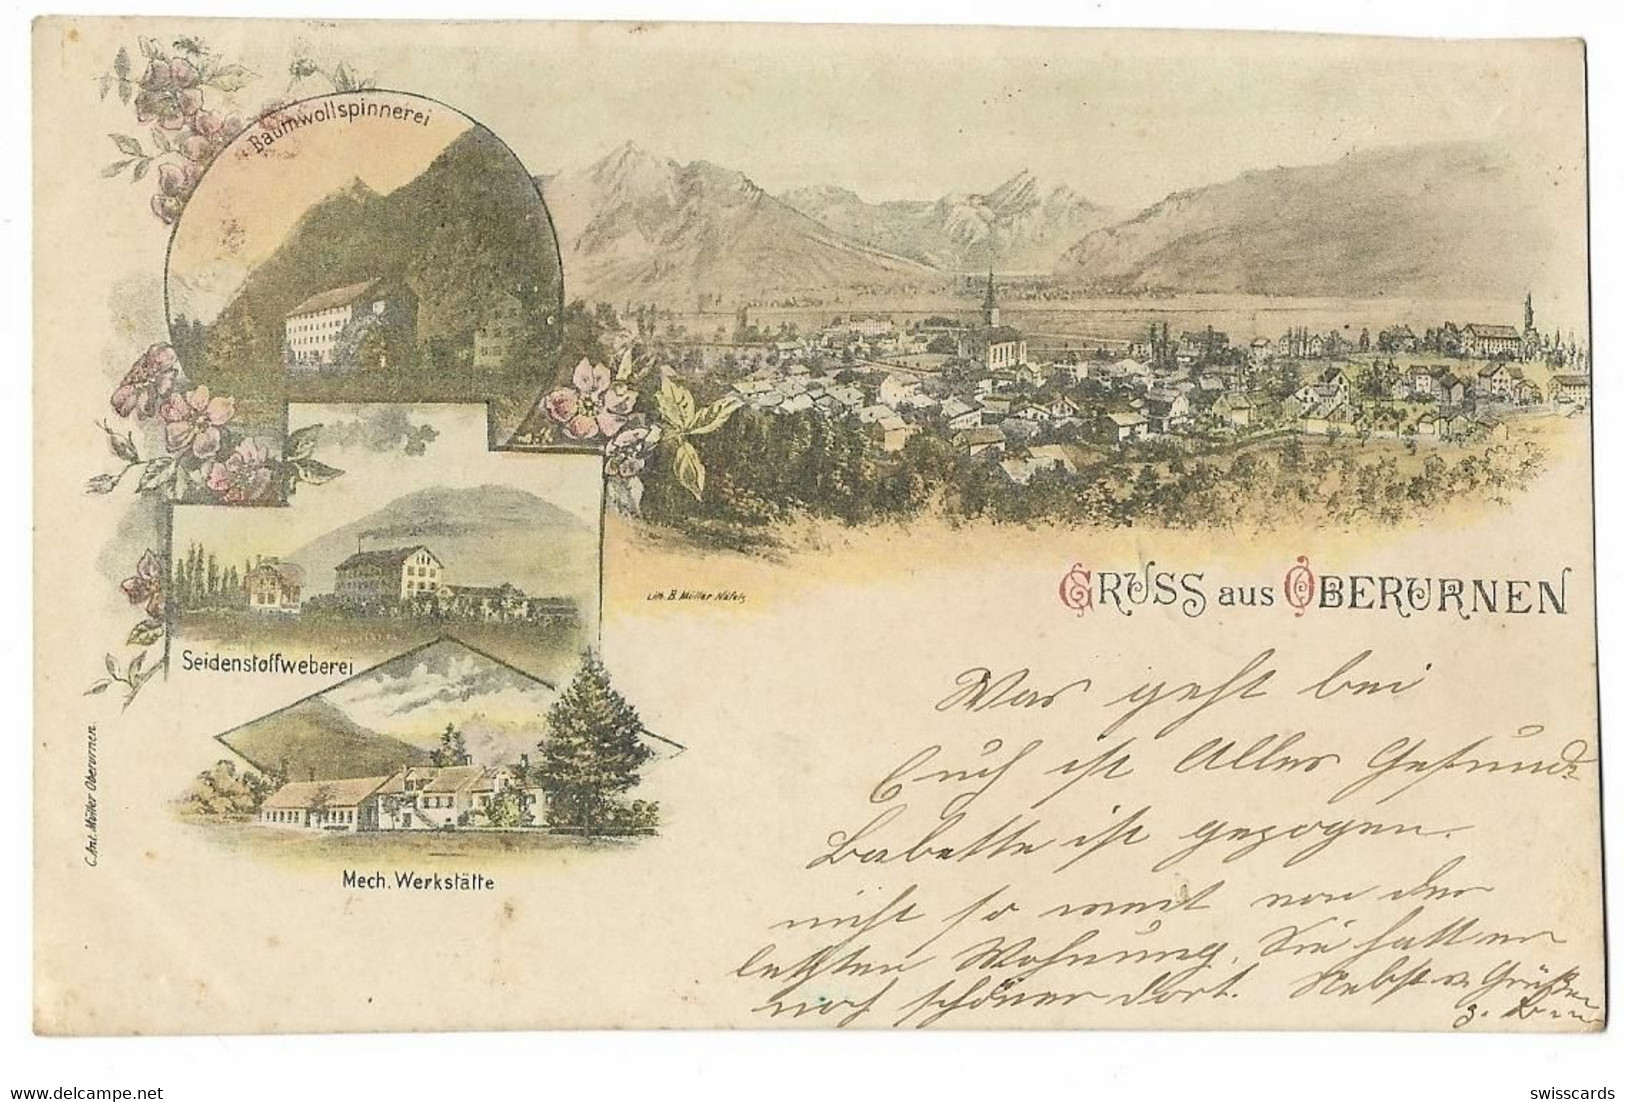 Baumwollspinnerei
GRUSS aus OBERURNEN
Lith. B. Müller Näfels
Seidenstoffweberei
C. Ant. Müller Oberurnen.
Mech. Werkstätte
Was geht bei
Euch ist Alles Gesund
Babette ist gezogen.
nicht so weit von der
letzten Wohnung. Sie hatten
noch schöner dort. Nebst v. Grüßen
swisscards